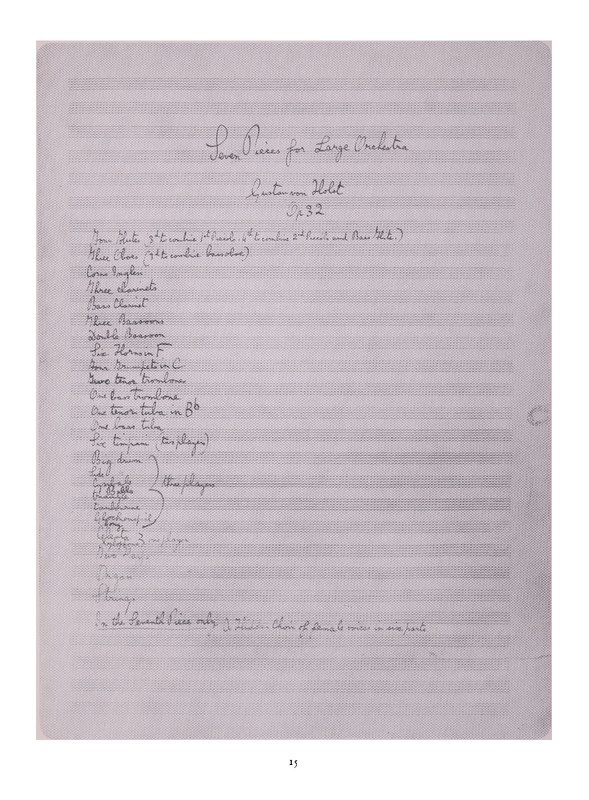 Seven Pieces for Large Orchestra
Gustav von Holst
Op 32
Four Flutes (3rd to combine 1st Piccolo. 4th to combine 2nd Piccolo and Bass Flute.)
Three Oboes (3rd to combine bass oboe)
Corno Inglese
Three clarinets
Bass Clarinet
Three Bassoons
Double Bassoon
Six Horns in F
Four Trumpets in C
Two tenor trombones
One bass trombone
One tenor tuba in Bb
One bass tuba
Six timpani (two players)
Big drum
Side
Cymbals
Bells
triangle
Tambourine
Glockenspiel
Gong
three players
Celesta
Xylophone
player
Two Harps
Organ
Strings
In the Seventh Piece only. A Hidden Choir of female voices in six parts
15